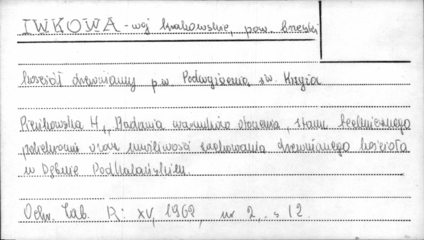 IWKOWA - woj. krakowskie, pow. brzeski
kościół drewniany p.w. Podwyższenia św. Krzyża
H., Badania warunków otoczenia, stanu technicznego
polichromii oraz możliwości zachowania drewnianego kościoła
w Dębnie Podhalańskim.
Ochr. Zab. R: XV, 1962, nr 2, s 12.